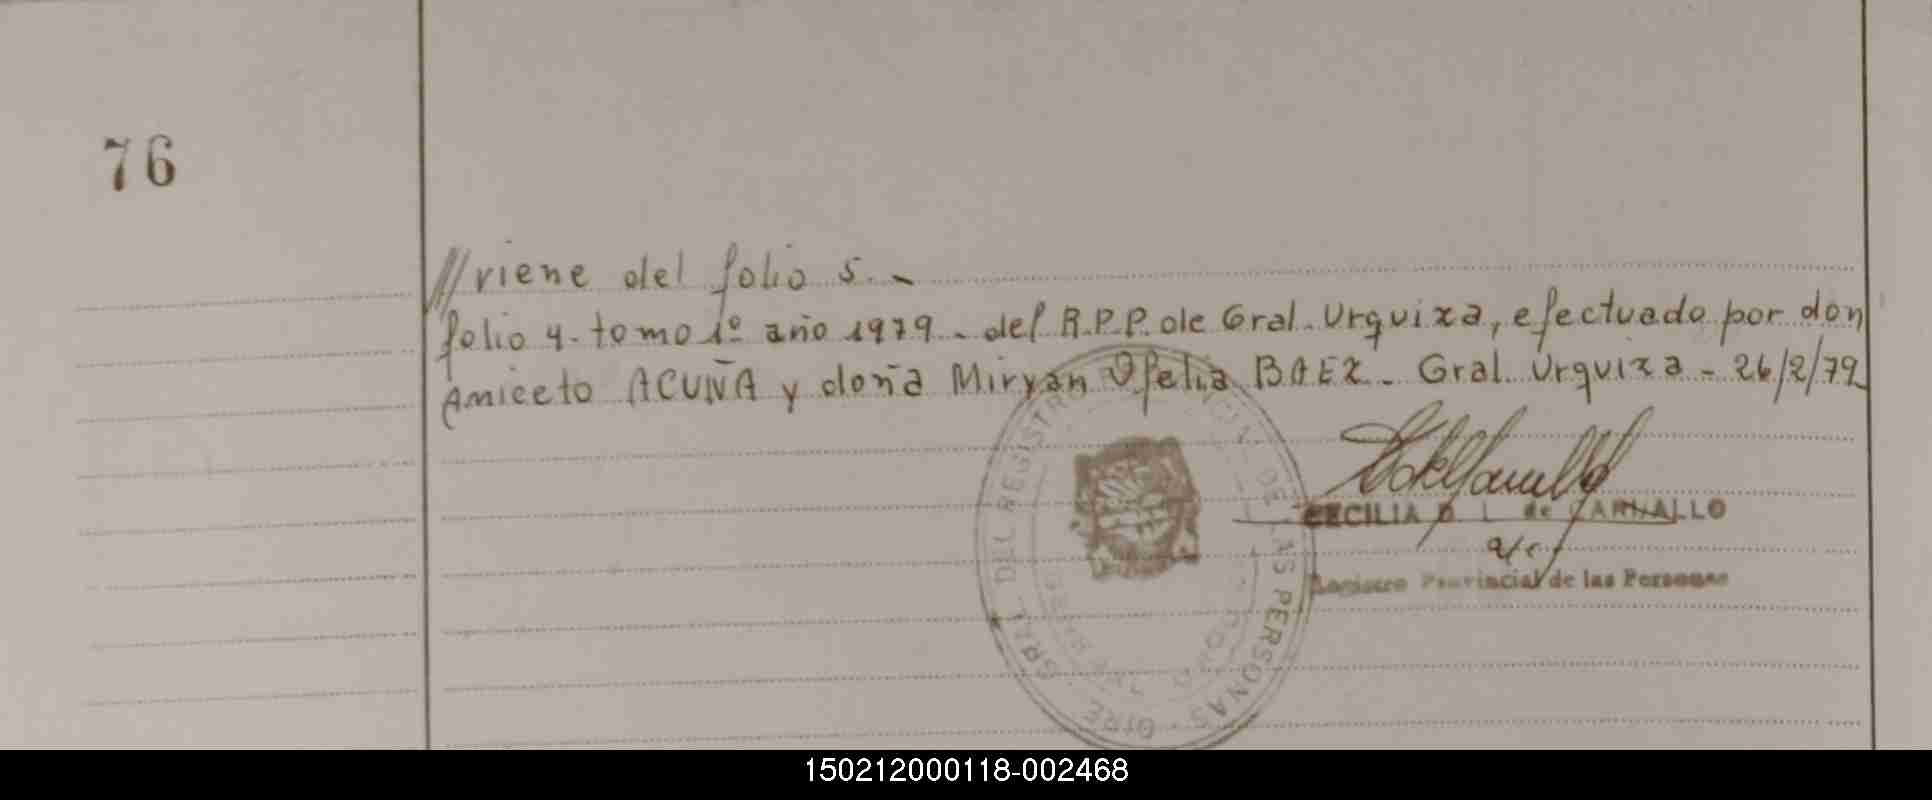 76
// viene del folio 5.-
folio 4. tomo 1º año 1979. del R.P.P. de Gral. Urquiza, efectuado por don
Aniceto ACUÑA y doña Miryan Ofelia BAEZ. Gral. Urquiza - 26/2/79
CECILIA D. L. de CARNALLO
a/c
Registro Provincial de las Personas
DEL REGISTRO DE LAS PERSONAS
150212000118-002468